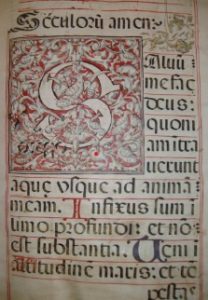 Sęculorũ amen
Saluũ
me fac
deus:
quoni
am itra
uerunt
aquę vsque ad animã
meam. Infixus sum i
limo profundi: et no
est substantia. Ueni i
altitudinę maris: et tẽ
pesta